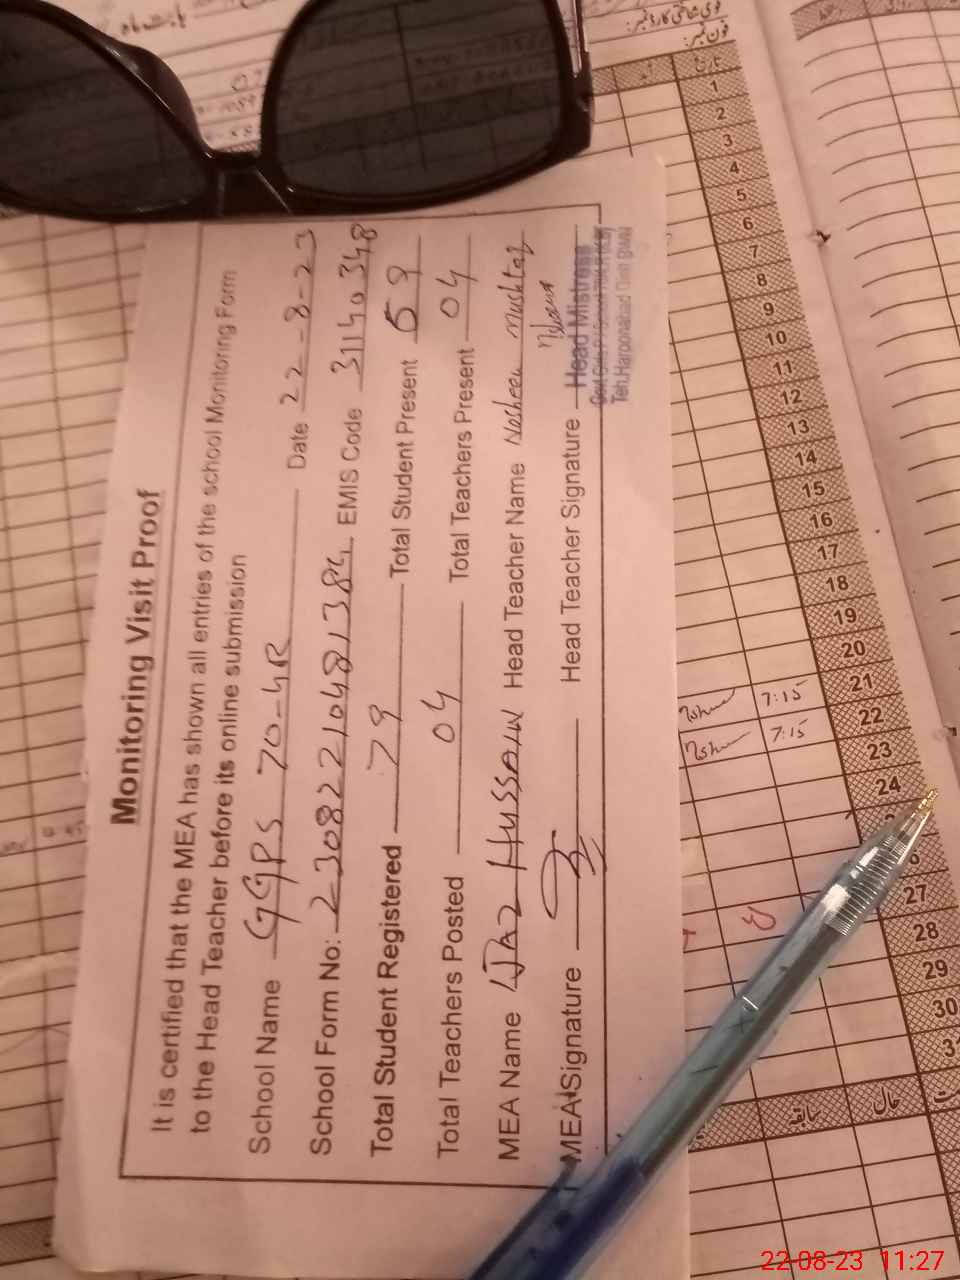 Monitoring Visit Proof
It is certified that the MEA has shown all entries of the school Monitoring Form
to the Head Teacher before its online submission
School Name GGPS 70-4R Date 22-8-23
School Form No: 23082210481384 EMIS Code 31140348
Total Student Registered 79 Total Student Present 59
Total Teachers Posted 04 Total Teachers Present 04
MEA Name IJAZ HUSSAIN Head Teacher Name Nosheen Mushtaq
MEA Signature Head Teacher Signature Head Mistress
Teh, Haroonabad
قومی شناختی کارڈ نمبر:
فون نمبر:
تاریخ
1
2
3
4
5
6
7
8
9
10
11
12
13
14
15
16
17
18
19
20
21 7:15
22 7:15
23
24
27
28
29
30
سابقہ حال
22-08-23 11:27